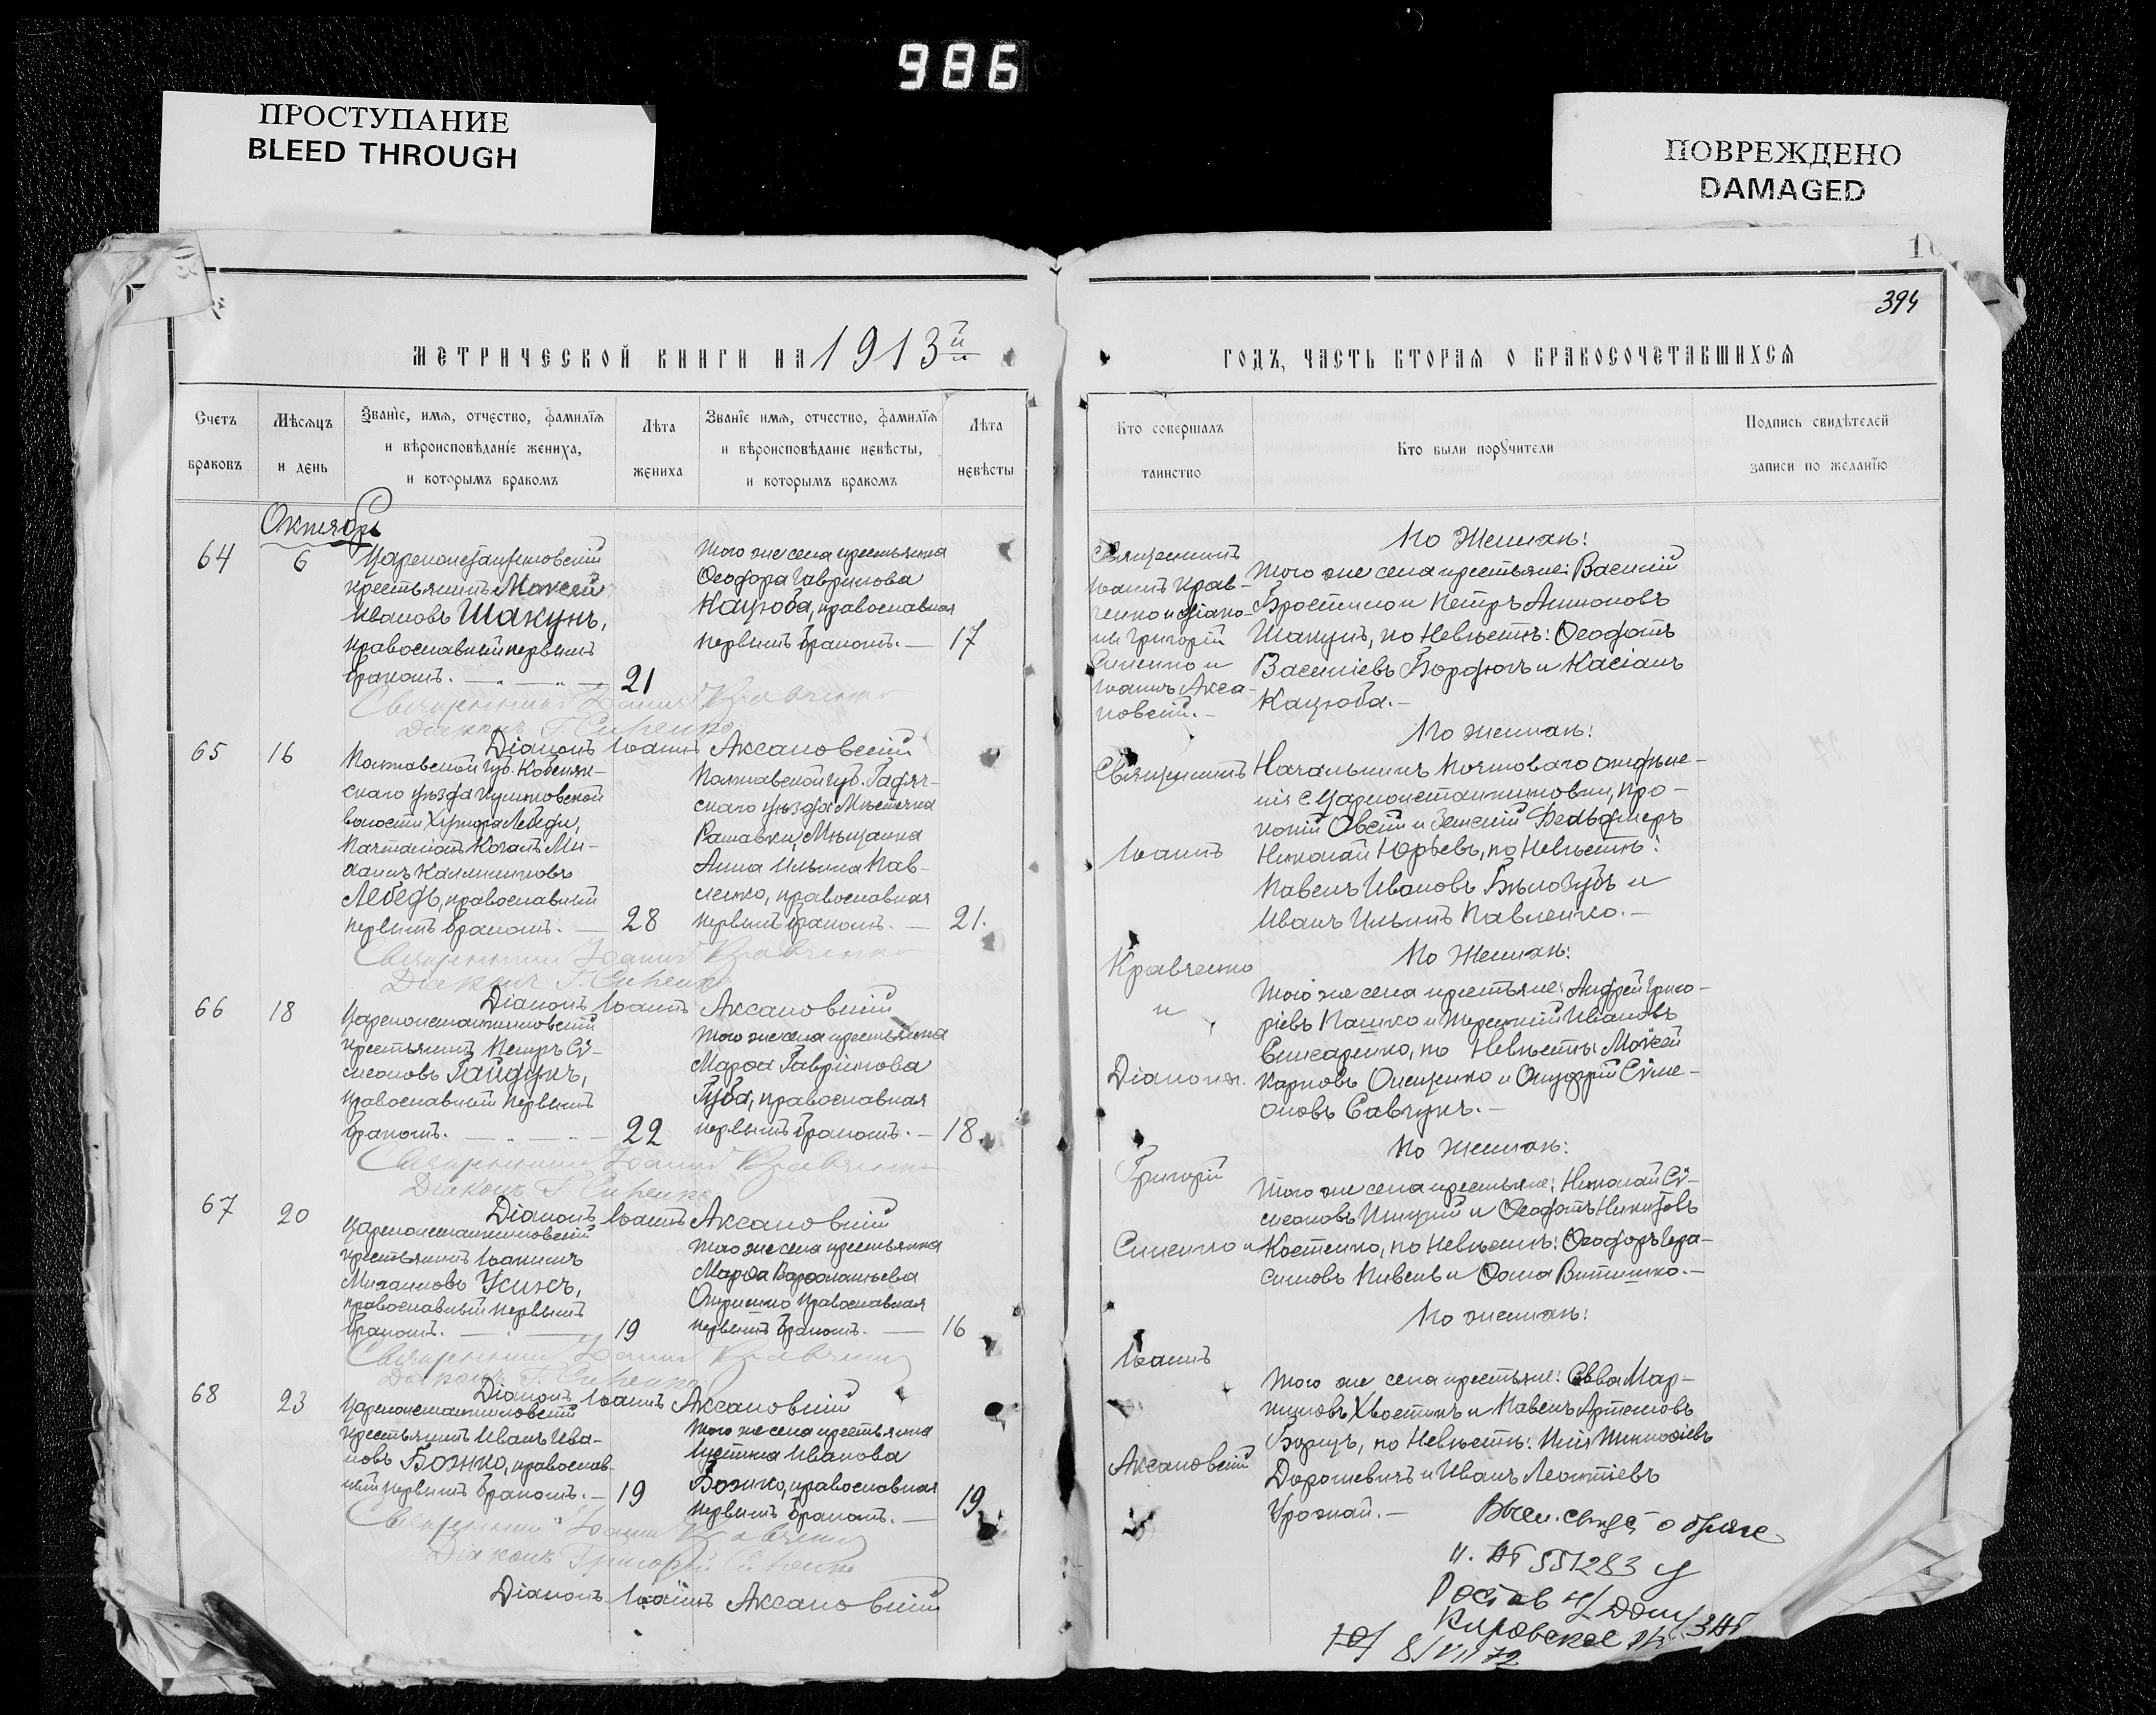 986
ПРОСТУПАНИЕ
BLEED THROUGH
ПОВРЕЖДЕНО
DAMAGED
394
Метрической книги на 1913й
годъ, часть вторая о бракосочетавшихся
Счетъ браковъ
Мѣсяцъ и день
Званіе, имя, отчество, фамилія
и вѣроисповѣданіе жениха,
и которымъ бракомъ
Лѣта жениха
Званіе имя, отчество, фамилія
и вѣроисповѣданіе невѣсты,
и которымъ бракомъ
Лѣта невѣсты
Кто совершалъ таинство
Кто были поручители
Подпись свидѣтелей
записи по желанію
Октябрь
64
6
Цареконстантиновскій
крестьянинъ Моисей
Ивановъ Шакунъ,
православный первымъ
бракомъ.
21
Того же села крестьянка
Ѳеодора Гаврилова
Кацюба, православная
первымъ бракомъ.
17
Священникъ Іоаннъ Кравченко
Діаконъ Г. Синенко
Діаконъ Іоаннъ Аксановскій
65
16
Полтавской губ. Кобеляк-
скаго уѣзда
волости Хутора Лебеди,
Ми-
хаилъ Каллиниковъ
Лебедь, православный
первымъ бракомъ.
28
Полтавской губ. Гадяч-
скаго уѣзда Мѣстечка
Рашавки, Мѣщанка
Анна Ильина Пав-
ленко, православная
первымъ бракомъ.
21.
Священникъ Іоаннъ Кравченко
Діаконъ Г. Синенко
Діаконъ Іоаннъ Аксановскій
66
18
Цареконстантиновскій
крестьянинъ Петръ Сѵ-
меоновъ Гайдукъ,
православный первымъ
бракомъ.
22
Того же села крестьянка
Марѳа Гаврилова
Губа, православная
первымъ бракомъ.
18.
Священникъ Іоаннъ Кравченко
Діаконъ Г. Синенко
Діаконъ Іоаннъ Аксановскій
67
20
Цареконстантиновскій
крестьянинъ Іоакимъ
Михаиловъ Усикъ,
православный первымъ
бракомъ.
19
Того же села крестьянка
Марѳа Варѳоломеева
Онрипко православная
первымъ бракомъ.
16
Священникъ Іоаннъ Кравченко
Діаконъ Г. Синенко
Діаконъ Іоаннъ Аксановскій
68
23
Цареконстантиновскій
крестьянинъ Иванъ Ива-
новъ Божко, православ-
ный первымъ бракомъ.
19
Того же села крестьянка
Іустина Иванова
Божко, православная
первымъ бракомъ.
19.
Священникъ Іоаннъ Кравченко
Діаконъ Григорій Синенко
Діаконъ Іоаннъ Аксановскій
Священникъ
Іоаннъ Крав-
ченко и діако-
ны Григорій
Синенко и
Іоаннъ Акса-
новскій.
По Женихѣ:
Того же села крестьяне: Василій
и Петръ Антоновъ
Шакунъ, по Невѣстѣ: Ѳеодотъ
Василіевъ Бордюгъ и Касіанъ
Кацюба.
Священникъ
Іоаннъ
Кравченко
и
Діаконы.
Григорій
Синенко и
Іоаннъ
Аксановскій
По женихѣ:
Начальникъ почтоваго отдѣле-
нія с. Цареконстантиновки, Про-
копій Овсій и Земскій Фельдшеръ
Николай Юрьевъ, по Невѣстѣ:
Павелъ Ивановъ Бѣлозубъ и
Иванъ Ильинъ Павленко.
По Женихѣ:
Того же села крестьяне: Андрей Григо-
ріевъ Пашко и Терентій Ивановъ
по Невѣстѣ: Моѵсей
Карповъ Онищенко и Онуфрій Сѵме-
оновъ Савчукъ.
По Женихѣ:
Того же села крестьяне: Николай Сѵ-
меоновъ и Ѳеодотъ
Костенко, по Невѣстѣ: Ѳеодоръ Гера-
симовъ Пивень и Ѳома
По женихѣ:
Того же села крестьяне: Савва Мар-
тиновъ Хвостикъ и Павелъ Артемовъ
Борщъ, по Невѣстѣ: Илія Тимоѳіевъ
Дорошевичъ и Иванъ Леонтіевъ
Урожай.
о браке
551283
Ростов н/Дону
Кировское ЗАГС
8/VII 72